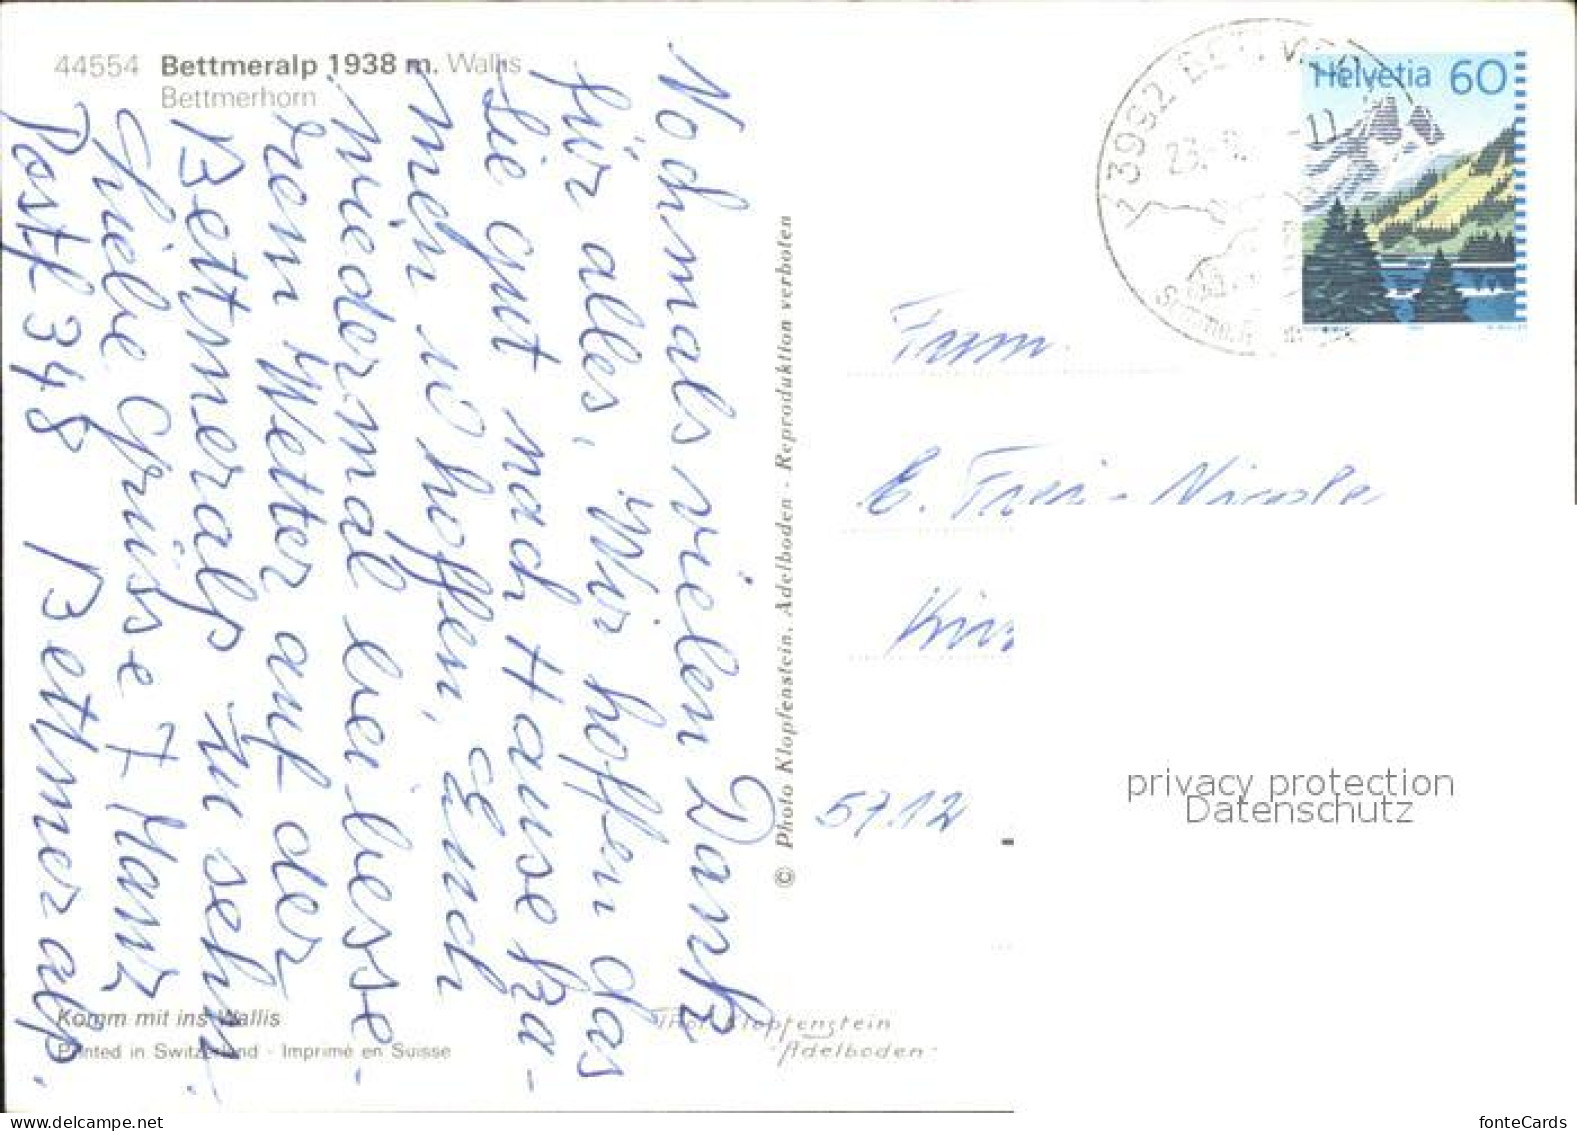 44554 Bettmeralp 1938 m. Wallis
Bettmerhorn
Nochmals vielen Dank
für alles, Wir hoffen das
Sie gut nach Hause ka-
men u hoffen, Euch
wiedermal bei besse-
rem Wetter auf der
Bettmeralp zu sehn.
Liebe Grüsse
Postf 348 Bettmeralp.
Komm mit ins Wallis
Printed in Switzerland - Imprimé en Suisse
© Photo Klopfenstein, Adelboden - Reproduktion verboten
Klopfenstein
Adelboden
3992
23.
Helvetia 60
E. Frei-
5712
privacy protection
Datenschutz
fonteCards